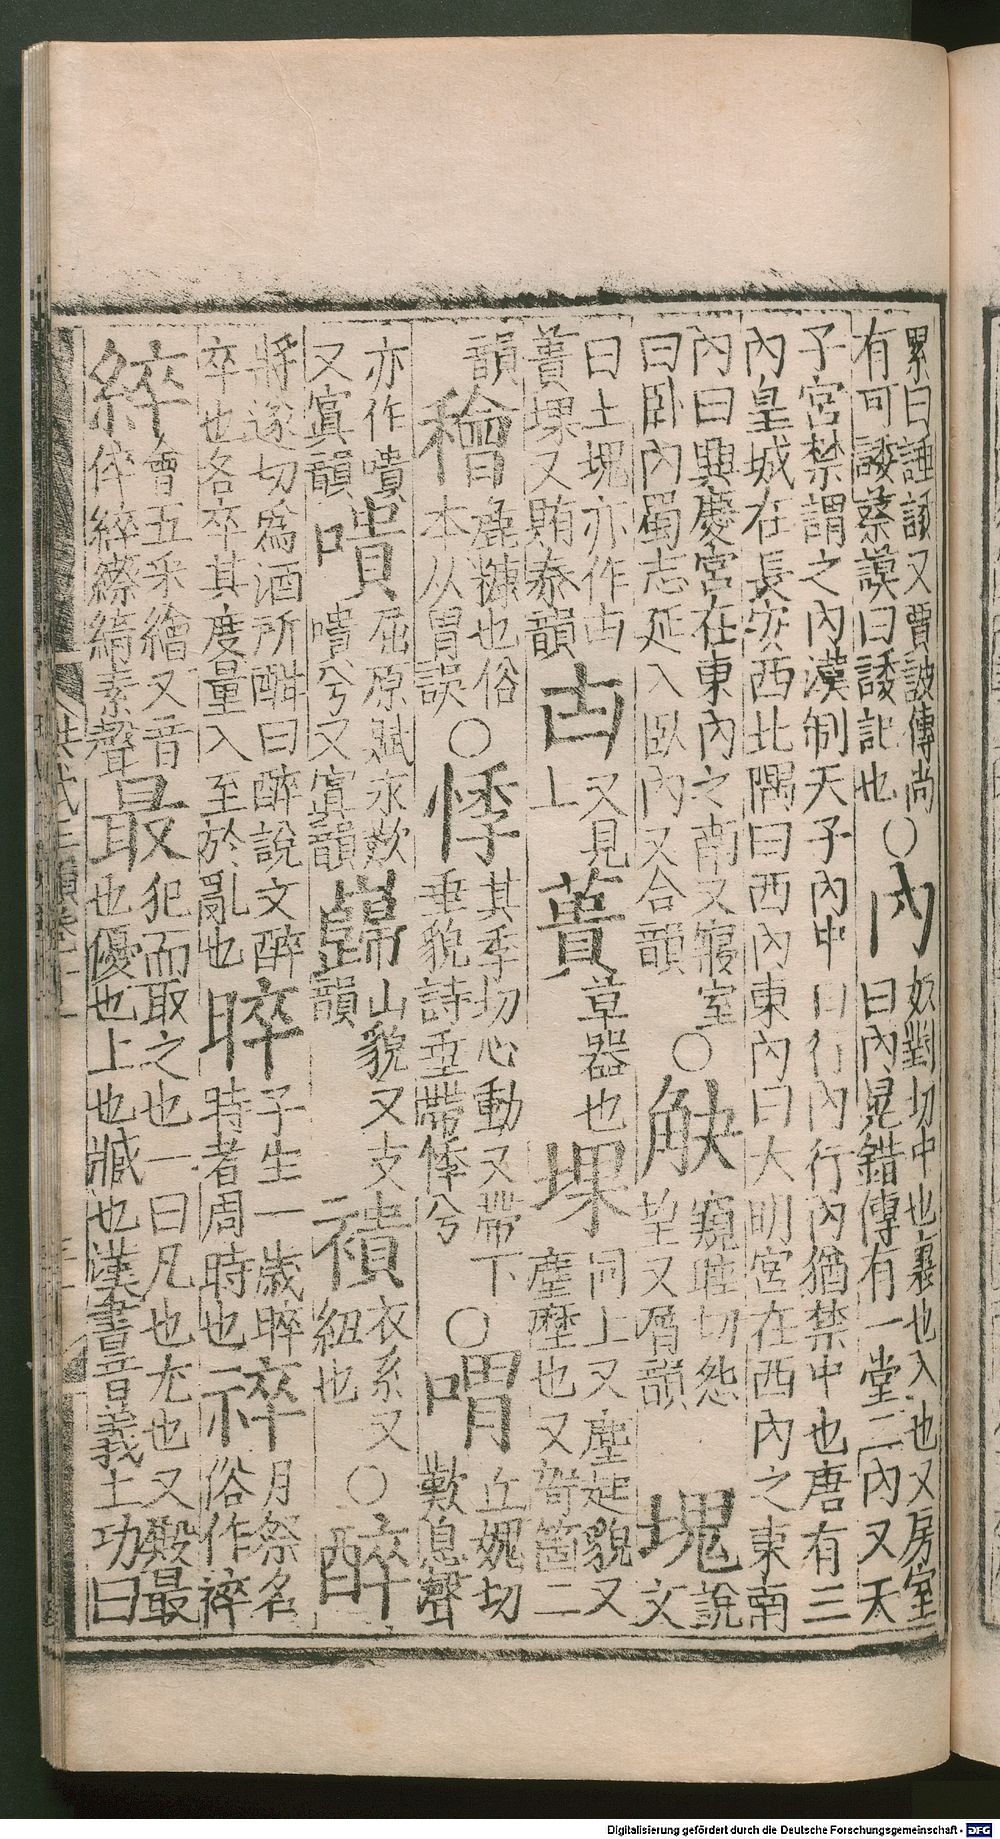 累曰諈諉又賈誼傳尚
有可諉蔡謨曰諉託也○內奴對切中也裏也入也又房室
曰內晁錯傳有一堂二內又天
子宮禁謂之內漢制天子內中曰行內行內猶禁中也唐有三
內皇城在長安西北隅曰西內東內曰大明宮在西內之東南
內曰興慶宮在東內之南又寢室
曰臥內蜀志延入臥內又合韻○觖窺睡切怨
望又屑韻塊說文
曰土塊亦作凷
蕢堁又賄泰韻凷又見
上蕢草器也堁同上又塵起貌又
塵壓也又哿箇二
韻穭麤糠也俗
本从胃誤○悸其季切心動又帶下
垂貌詩垂帶悸兮○喟丘媿切
歎息聲
亦作嘳
又寘韻嘳屈原賦永歎
嘳兮又寘韻巋山貌又支
韻䙡衣系又
紐也○醉
將遂切為酒所酣曰醉說文醉
卒也各卒其度量入至於亂也晬子生一歲晬
時者周時也䘹月祭名
俗作䘹
綷會五采繒又音
倅綷縩紈素聲最犯而取之也一曰凡也尤也又殿最
也優也上也臧也漢書音義上功曰
Digitalisierung gefördert durch die Deutsche Forschungsgemeinschaft - DFG